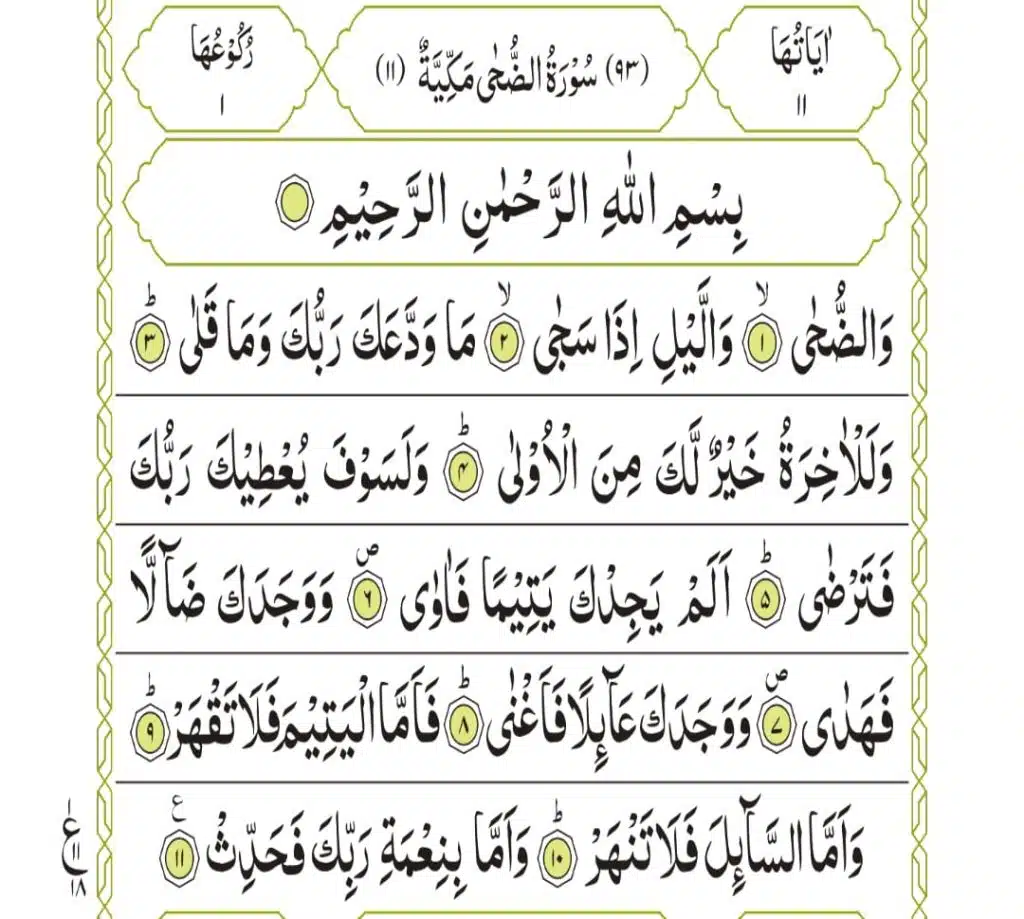 اٰیَاتُهَا
۱۱
(۹۳) سُوْرَةُ الضُّحٰى مَكِّيَّةٌ (۱۱)
رُكُوْعُهَا
۱
بِسْمِ اللّٰهِ الرَّحْمٰنِ الرَّحِيْمِ
وَالضُّحٰى ۙ‏﴿۱﴾ وَالَّيْلِ اِذَا سَجٰى ۙ‏﴿۲﴾ مَا وَدَّعَكَ رَبُّكَ وَمَا قَلٰى ؕ‏﴿۳﴾
وَلَلْاٰخِرَةُ خَيْرٌ لَّكَ مِنَ الْاُوْلٰى ؕ‏﴿۴﴾ وَلَسَوْفَ يُعْطِيْكَ رَبُّكَ
فَتَرْضٰى ؕ‏﴿۵﴾ اَلَمْ يَجِدْكَ يَتِيْمًا فَاٰوٰى ۪‏﴿۶﴾ وَوَجَدَكَ ضَآلًّا
فَهَدٰى ۪‏﴿۷﴾ وَوَجَدَكَ عَآٮِٕلًا فَاَغْنٰى ؕ‏﴿۸﴾ فَاَمَّا الْيَتِيْمَ فَلَا تَقْهَرْ ؕ‏﴿۹﴾
وَاَمَّا السَّآٮِٕلَ فَلَا تَنْهَرْ ؕ‏﴿۱۰﴾ وَاَمَّا بِنِعْمَةِ رَبِّكَ فَحَدِّثْ ﴿۱۱﴾ ع
۱
ع
۱۱
۱۸